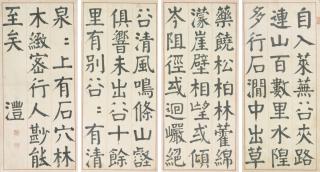 自入萊蕪谷夾路
連山百數里水隍
多行石澗中出草
藥饒松柏林藿綿
濛崖壁相望或傾
岑阻徑或迴巖絕
谷清風鳴條山壑
俱響未出谷十餘
里有別谷〻有清
泉〻上有石穴林
木緻密行人尠能
至矣 澧